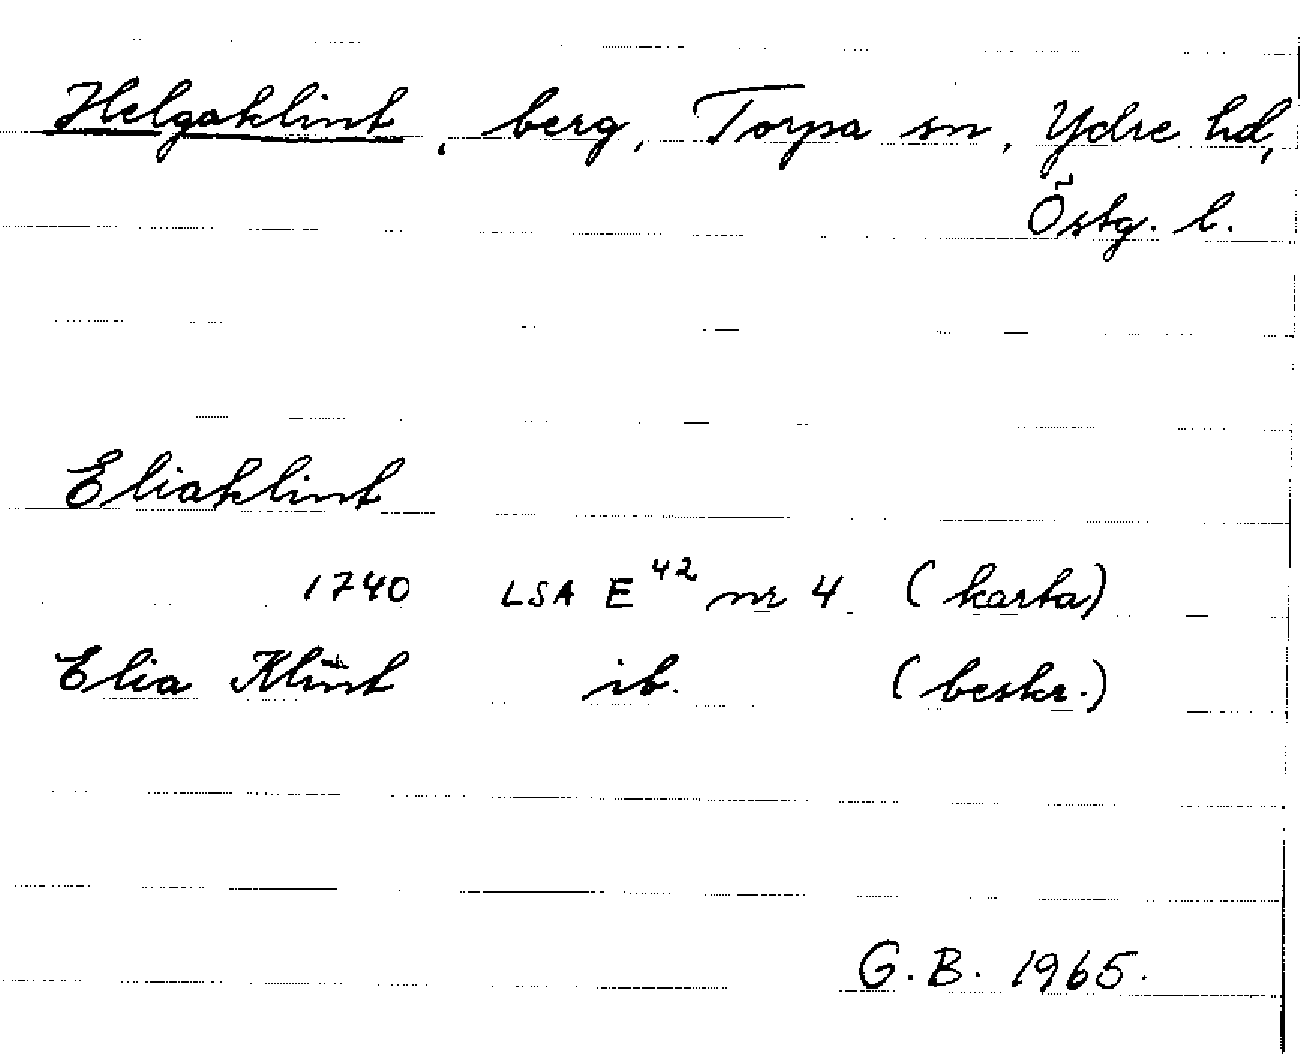 Helgaklint, berg, Torpa sn, Ydre hd,
Östg. l.
Eliaklint
1740 LSA E⁴² nr 4 (karta)
Elia Klint ib. (beskr.)
G.B. 1965.